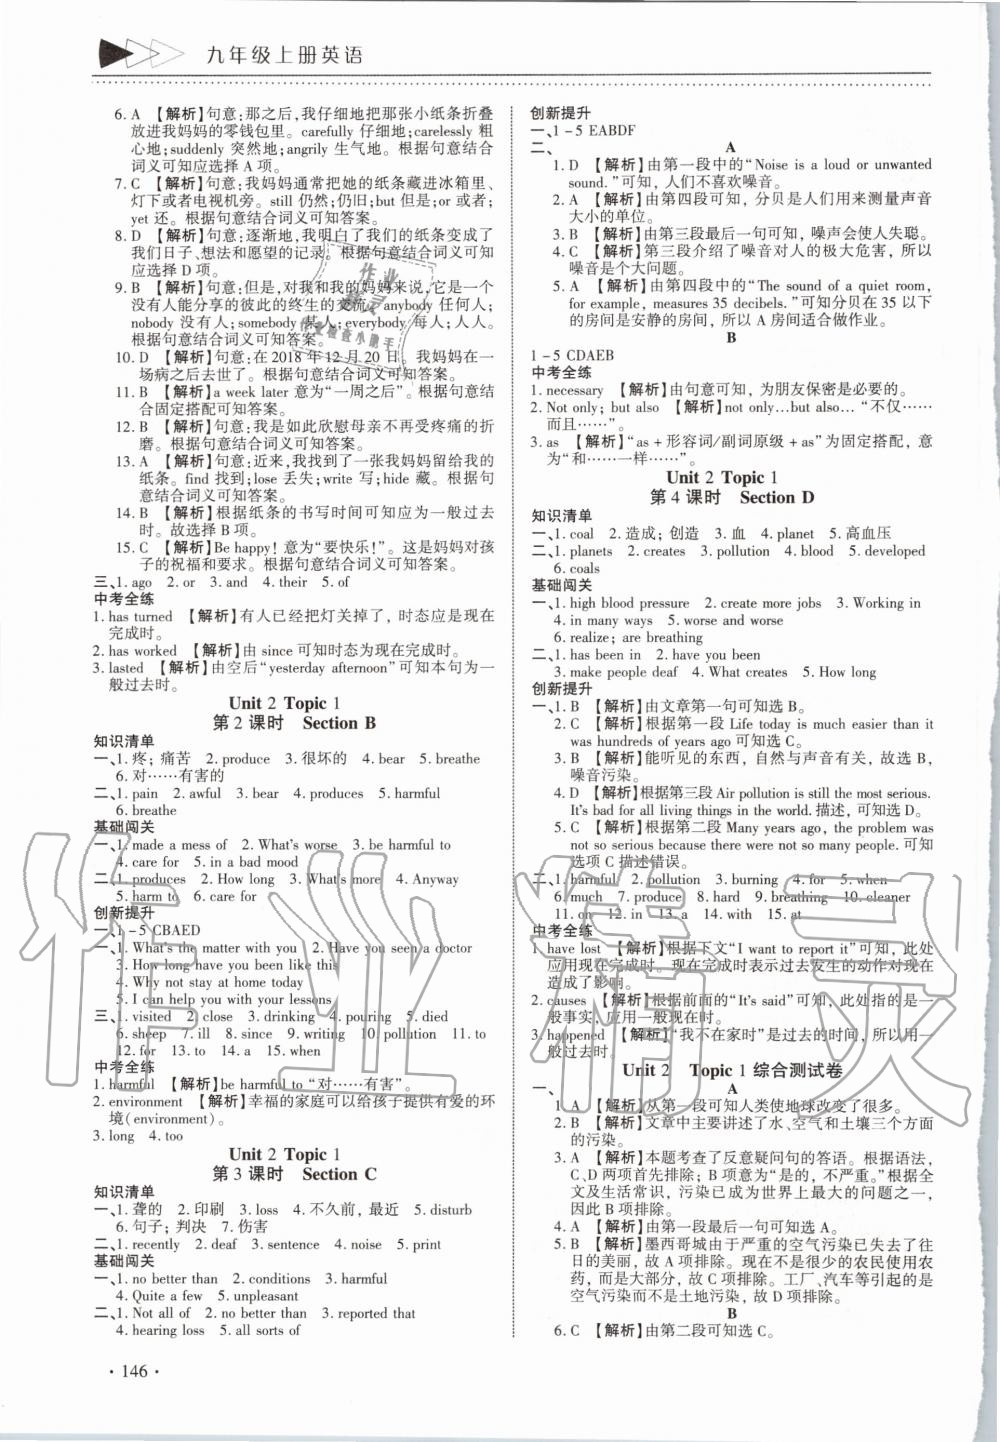 九年级上册英语
6. A 【解析】句意:那之后,我仔细地把那张小纸条折叠
放进我妈妈的零钱包里。carefully 仔细地;carelessly 粗
心地;suddenly 突然地;angrily 生气地。根据句意结合
词义可知应选择 A 项。
7. C 【解析】句意:我妈妈通常把她的纸条藏进冰箱里、
灯下或者电视机旁。still 仍然;仍旧;but 但是;or 或者;
yet 还。根据句意结合词义可知答案。
8. D 【解析】句意:逐渐地,我明白了我们的纸条成了
我们日子、想法和愿望的记录。根据句意结合词义可知
应选择 D 项。
9. B 【解析】句意:但是,对我和我的妈妈来说,它是一个
没有人能分享的彼此的终生的交流。anybody 任何人;
nobody 没有人;somebody 某人;everybody 每人;人人。
根据句意结合词义可知答案。
10. D 【解析】句意:在 2018 年 12 月 20 日。我妈妈在一
场病之后去世了。根据句意结合词义可知答案。
11. B 【解析】a week later 意为“一周之后”。根据句意结
合固定搭配可知答案。
12. B 【解析】句意:我是如此欣慰母亲不再受疼痛的折
磨。根据句意结合词义可知答案。
13. A 【解析】句意:近来,我找到了一张我妈妈留给我的
纸条。find 找到;lose 丢失;write 写;hide 藏。根据句
意结合词义可知答案。
14. B 【解析】根据纸条的书写时间可知应为一般过去
时。故选择 B 项。
15. C 【解析】Be happy! 意为“要快乐!”。这是妈妈对孩
子的祝福和要求。根据句意结合词义可知答案。
三、1. ago 2. or 3. and 4. their 5. of
中考全练
1. has turned 【解析】有人已经把灯关掉了,时态应是现在
完成时。
2. has worked 【解析】由 since 可知时态为现在完成时。
3. lasted 【解析】由空后“yesterday afternoon”可知本句为一
般过去时。
Unit 2 Topic 1
第 2 课时 Section B
知识清单
一、1. 疼;痛苦 2. produce 3. 很坏的 4. bear 5. breathe
6. 对……有害的
二、1. pain 2. awful 3. bear 4. produces 5. harmful
6. breathe
基础闯关
一、1. made a mess of 2. What's worse 3. be harmful to
4. care for 5. in a bad mood
二、1. produces 2. How long 3. What's more 4. Anyway
5. harm to 6. care for
创新提升
一、1-5 CBAED
二、1. What's the matter with you 2. Have you seen a doctor
3. How long have you been like this
4. Why not stay at home today
5. I can help you with your lessons
三、1. visited 2. close 3. drinking 4. pouring 5. died
6. sheep 7. ill 8. since 9. writing 10. pollution 11. to
12. for 13. to 14. a 15. when
中考全练
1. harmful 【解析】be harmful to “对……有害”。
2. environment 【解析】幸福的家庭可以给孩子提供有爱的环
境(environment)。
3. long 4. too
Unit 2 Topic 1
第 3 课时 Section C
知识清单
一、1. 聋的 2. 印刷 3. loss 4. 不久前,最近 5. disturb
6. 句子;判决 7. 伤害
二、1. recently 2. deaf 3. sentence 4. noise 5. print
基础闯关
一、1. no better than 2. conditions 3. harmful
4. Quite a few 5. unpleasant
二、1. Not all of 2. no better than 3. reported that
4. hearing loss 5. all sorts of
· 146 ·
创新提升
一、1-5 EABDF
二、
A
1. D 【解析】由第一段中的“Noise is a loud or unwanted
sound.”可知,人们不喜欢噪音。
2. A 【解析】由第四段可知,分贝是人们用来测量声音
大小的单位。
3. B 【解析】由第三段最后一句可知,噪声会使人失聪。
4. C 【解析】第三段介绍了噪音对人的极大危害,所以
噪音是个大问题。
5. A 【解析】由第四段中的“The sound of a quiet room,
for example, measures 35 decibels.”可知分贝在 35 以下
的房间是安静的房间,所以 A 房间适合做作业。
B
1-5 CDAEB
中考全练
1. necessary 【解析】由句意可知,为朋友保密是必要的。
2. Not only; but also 【解析】not only…but also… “不仅……
而且……”。
3. as 【解析】“as + 形容词/副词原级 + as”为固定搭配,意
为“和……一样……”。
Unit 2 Topic 1
第 4 课时 Section D
知识清单
一、1. coal 2. 造成;创造 3. 血 4. planet 5. 高血压
二、1. planets 2. creates 3. pollution 4. blood 5. developed
6. coals
基础闯关
一、1. high blood pressure 2. create more jobs 3. Working in
4. in many ways 5. worse and worse
6. realize; are breathing
二、1. has been in 2. have you been
3. make people deaf 4. What creates 5. How long
创新提升
一、1. B 【解析】由文章第一句可知选 B。
2. C 【解析】根据第一段 Life today is much easier than it
was hundreds of years ago 可知选 C。
3. B 【解析】能听见的东西,自然与声音有关,故选 B,
噪音污染。
4. D 【解析】根据第三段 Air pollution is still the most serious.
It's bad for all living things in the world. 描述,可知选 D。
5. C 【解析】根据第二段 Many years ago, the problem was
not so serious because there were not so many people. 可知
选项 C 描述错误。
二、1. harmful 2. pollution 3. burning 4. for 5. when
6. much 7. produce 8. hard 9. breathing 10. cancer
11. on 12. in 13. a 14. with 15. at
中考全练
1. have lost 【解析】根据下文“I want to report it”可知,此处
应用现在完成时。现在完成时表示过去发生的动作对现在
造成了影响。
2. causes 【解析】根据前面的“It's said”可知,此处指的是一
般事实,应用一般现在时。
3. happened 【解析】“我不在家时”是过去的时间,所以用一
般过去时。
Unit 2 Topic 1 综合测试卷
一、
A
1. A 【解析】从第一段可知人类使地球改变了很多。
2. B 【解析】文章中主要讲述了水、空气和土壤三个方面
的污染。
3. A 【解析】本题考查了反意疑问句的答语。根据语法,
C、D 两项首先排除;B 项意为“是的,不严重。”根据全
文及生活常识,污染已成为世界上最大的问题之一,
因此 B 项排除。
4. A 【解析】由第一段最后一句可知选 A。
5. B 【解析】墨西哥城由于严重的空气污染已失去了往
日的美丽,故 A 排除。现在不是很少的农民使用农
药,而是大部分,故 C 排除。工厂、汽车等引起的是
空气污染而不是土地污染,故 D 项排除。
B
6. C 【解析】由第二段可知选 C。
作业
精灵
作业检查小助手
作业精灵